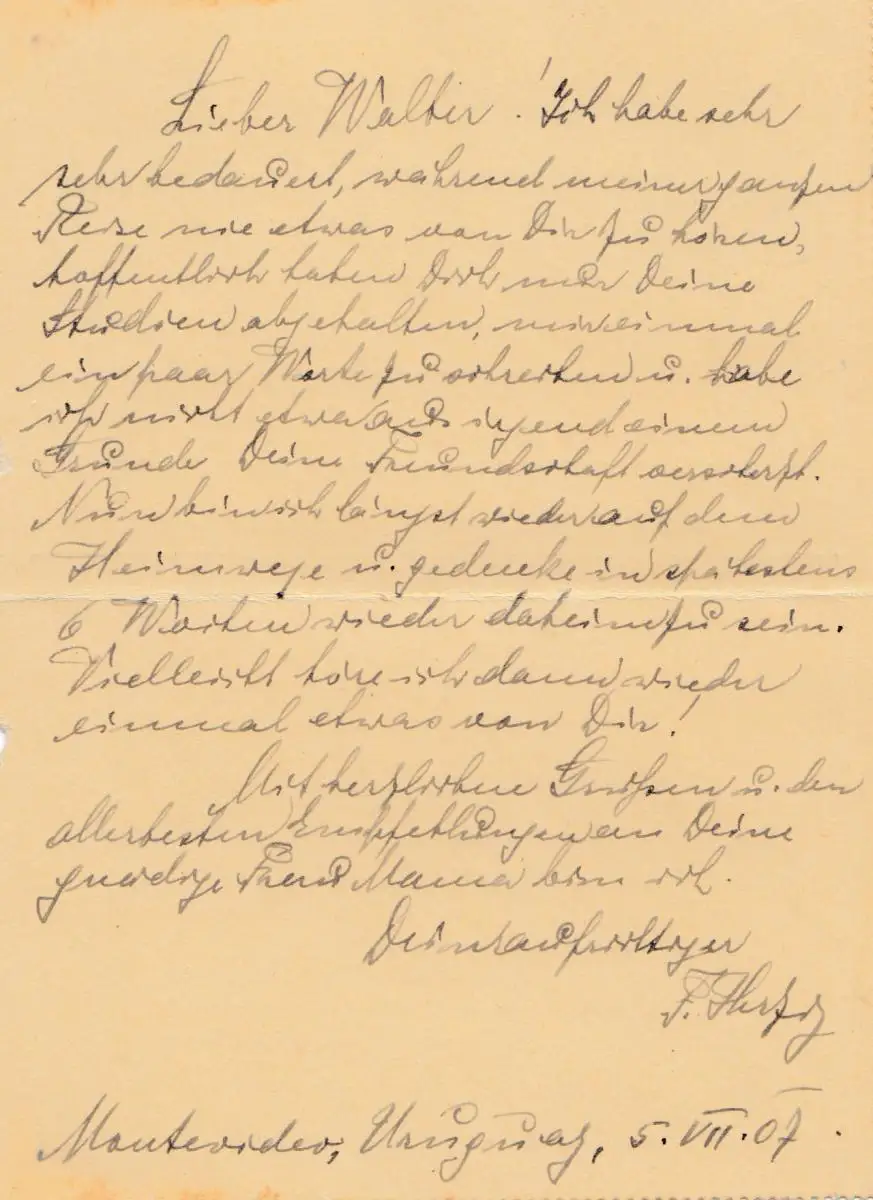 Lieber Walter! Ich habe sehr
sehr bedauert, während meiner ganzen
Reise nie etwas von Dir zu hören,
hoffentlich haben Dich nur Deine
Studien abgehalten, mir einmal
ein paar Worte zu schreiben u. habe
ich nicht etwa aus irgend einem
Grunde Deine Freundschaft verscherzt.
Nun bin ich längst wieder auf dem
Heimwege u. gedenke in spätestens
6 Wochen wieder daheim zu sein.
Vielleicht höre ich dann wieder
einmal etwas von Dir!
Mit herzlichen Grüßen u. den
allerbesten Empfehlungen an Deine
gnädige Frau Mama bin ich
Dein aufrichtiger
F. Herzig
Montevideo, Uruguay, 5. VII. 07.